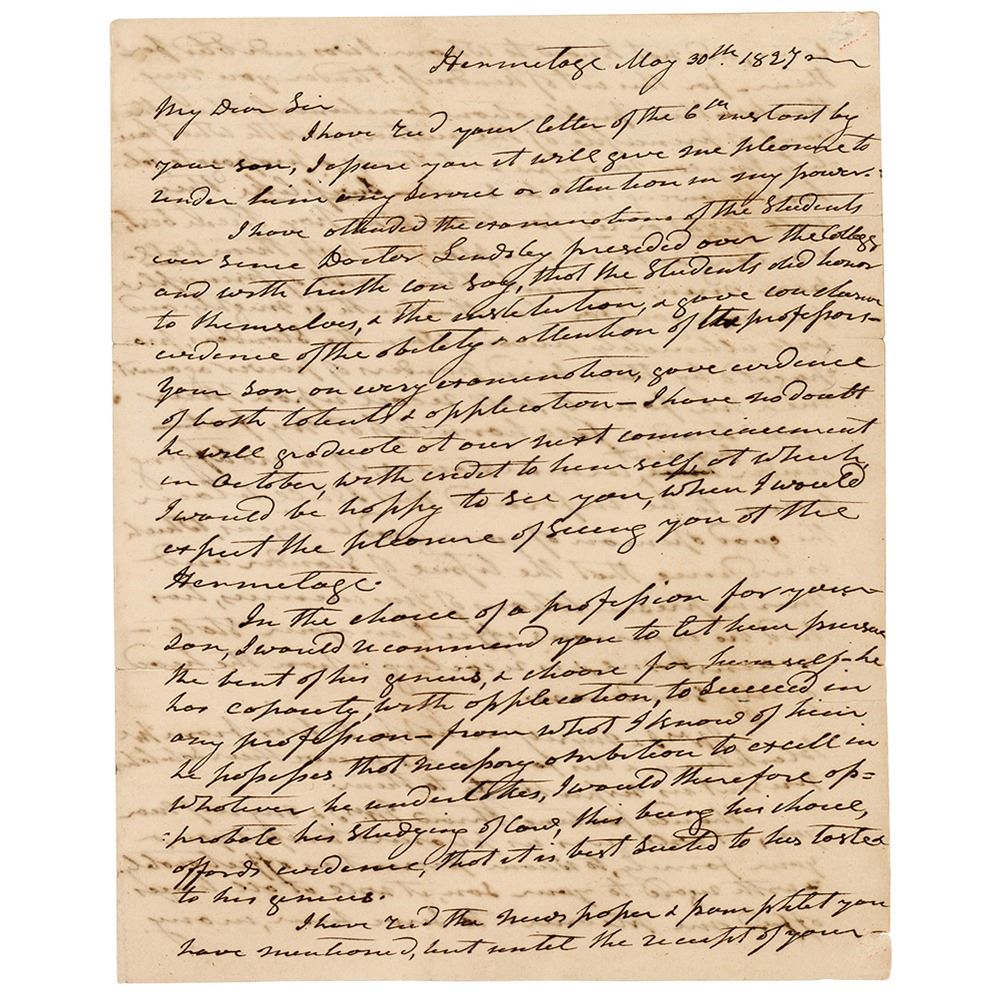 Hermitage May 30th. 1827
My Dear Sir
I have recd your letter of the 6th instant by
your son, I assure you it will give me pleasure to
render him any service or attention in my power.
I have attended the examinations of the Students
ever since Doctor Lindsley presided over the College
and with truth can say, that the Students did honor
to themselves, & the institution, & gave conclusive
evidence of the ability & attention of the professors—
your son on every examination, gave evidence
of both talents & application— I have no doubt
he will graduate at our next commencement
in October, with credit to himself, at which
I would be happy to see you, when I would
expect the pleasure of seeing you at the
Hermitage.
In the choice of a profession for your
son, I would recommend you to let him pursue
the bent of his genius, & choose for himself—he
has capacity, with application, to succeed in
any profession—from what I know of him
he possesses that necessary ambition to excell in
whatever he undertakes, I would therefore ap=
:probate his studying of law, this being his choice,
affords evidence, that it is best suited to his taste &
to his genius.
I have recd the news paper & pamphlet you
have mentioned, but until the receipt of your—